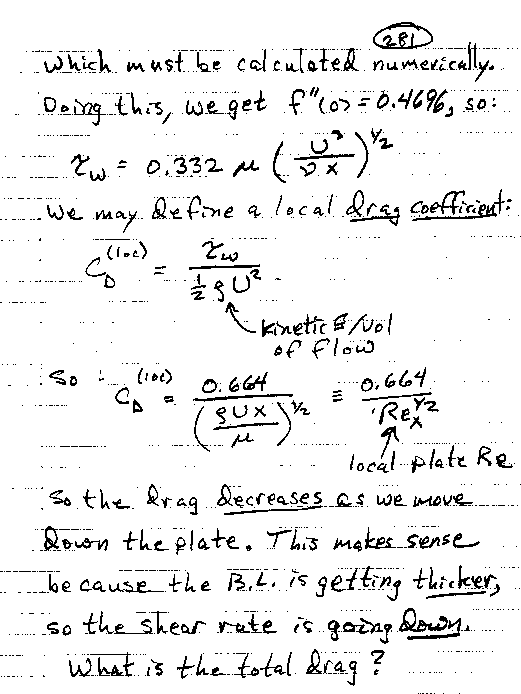 281
which must be calculated numerically.
Doing this, we get f"(0) = 0.4696, so:
τw = 0.332 μ (U³/νx)^1/2
We may define a local drag coefficient:
C_D^(loc) = τw / (½ ρU²)
kinetic E/vol
of flow
So: C_D^(loc) = 0.664 / (ρUx/μ)^1/2 ≡ 0.664 / Re_x^1/2
local plate Re
So the drag decreases as we move
down the plate. This makes sense
because the B.L. is getting thicker,
so the shear rate is going down.
What is the total drag?